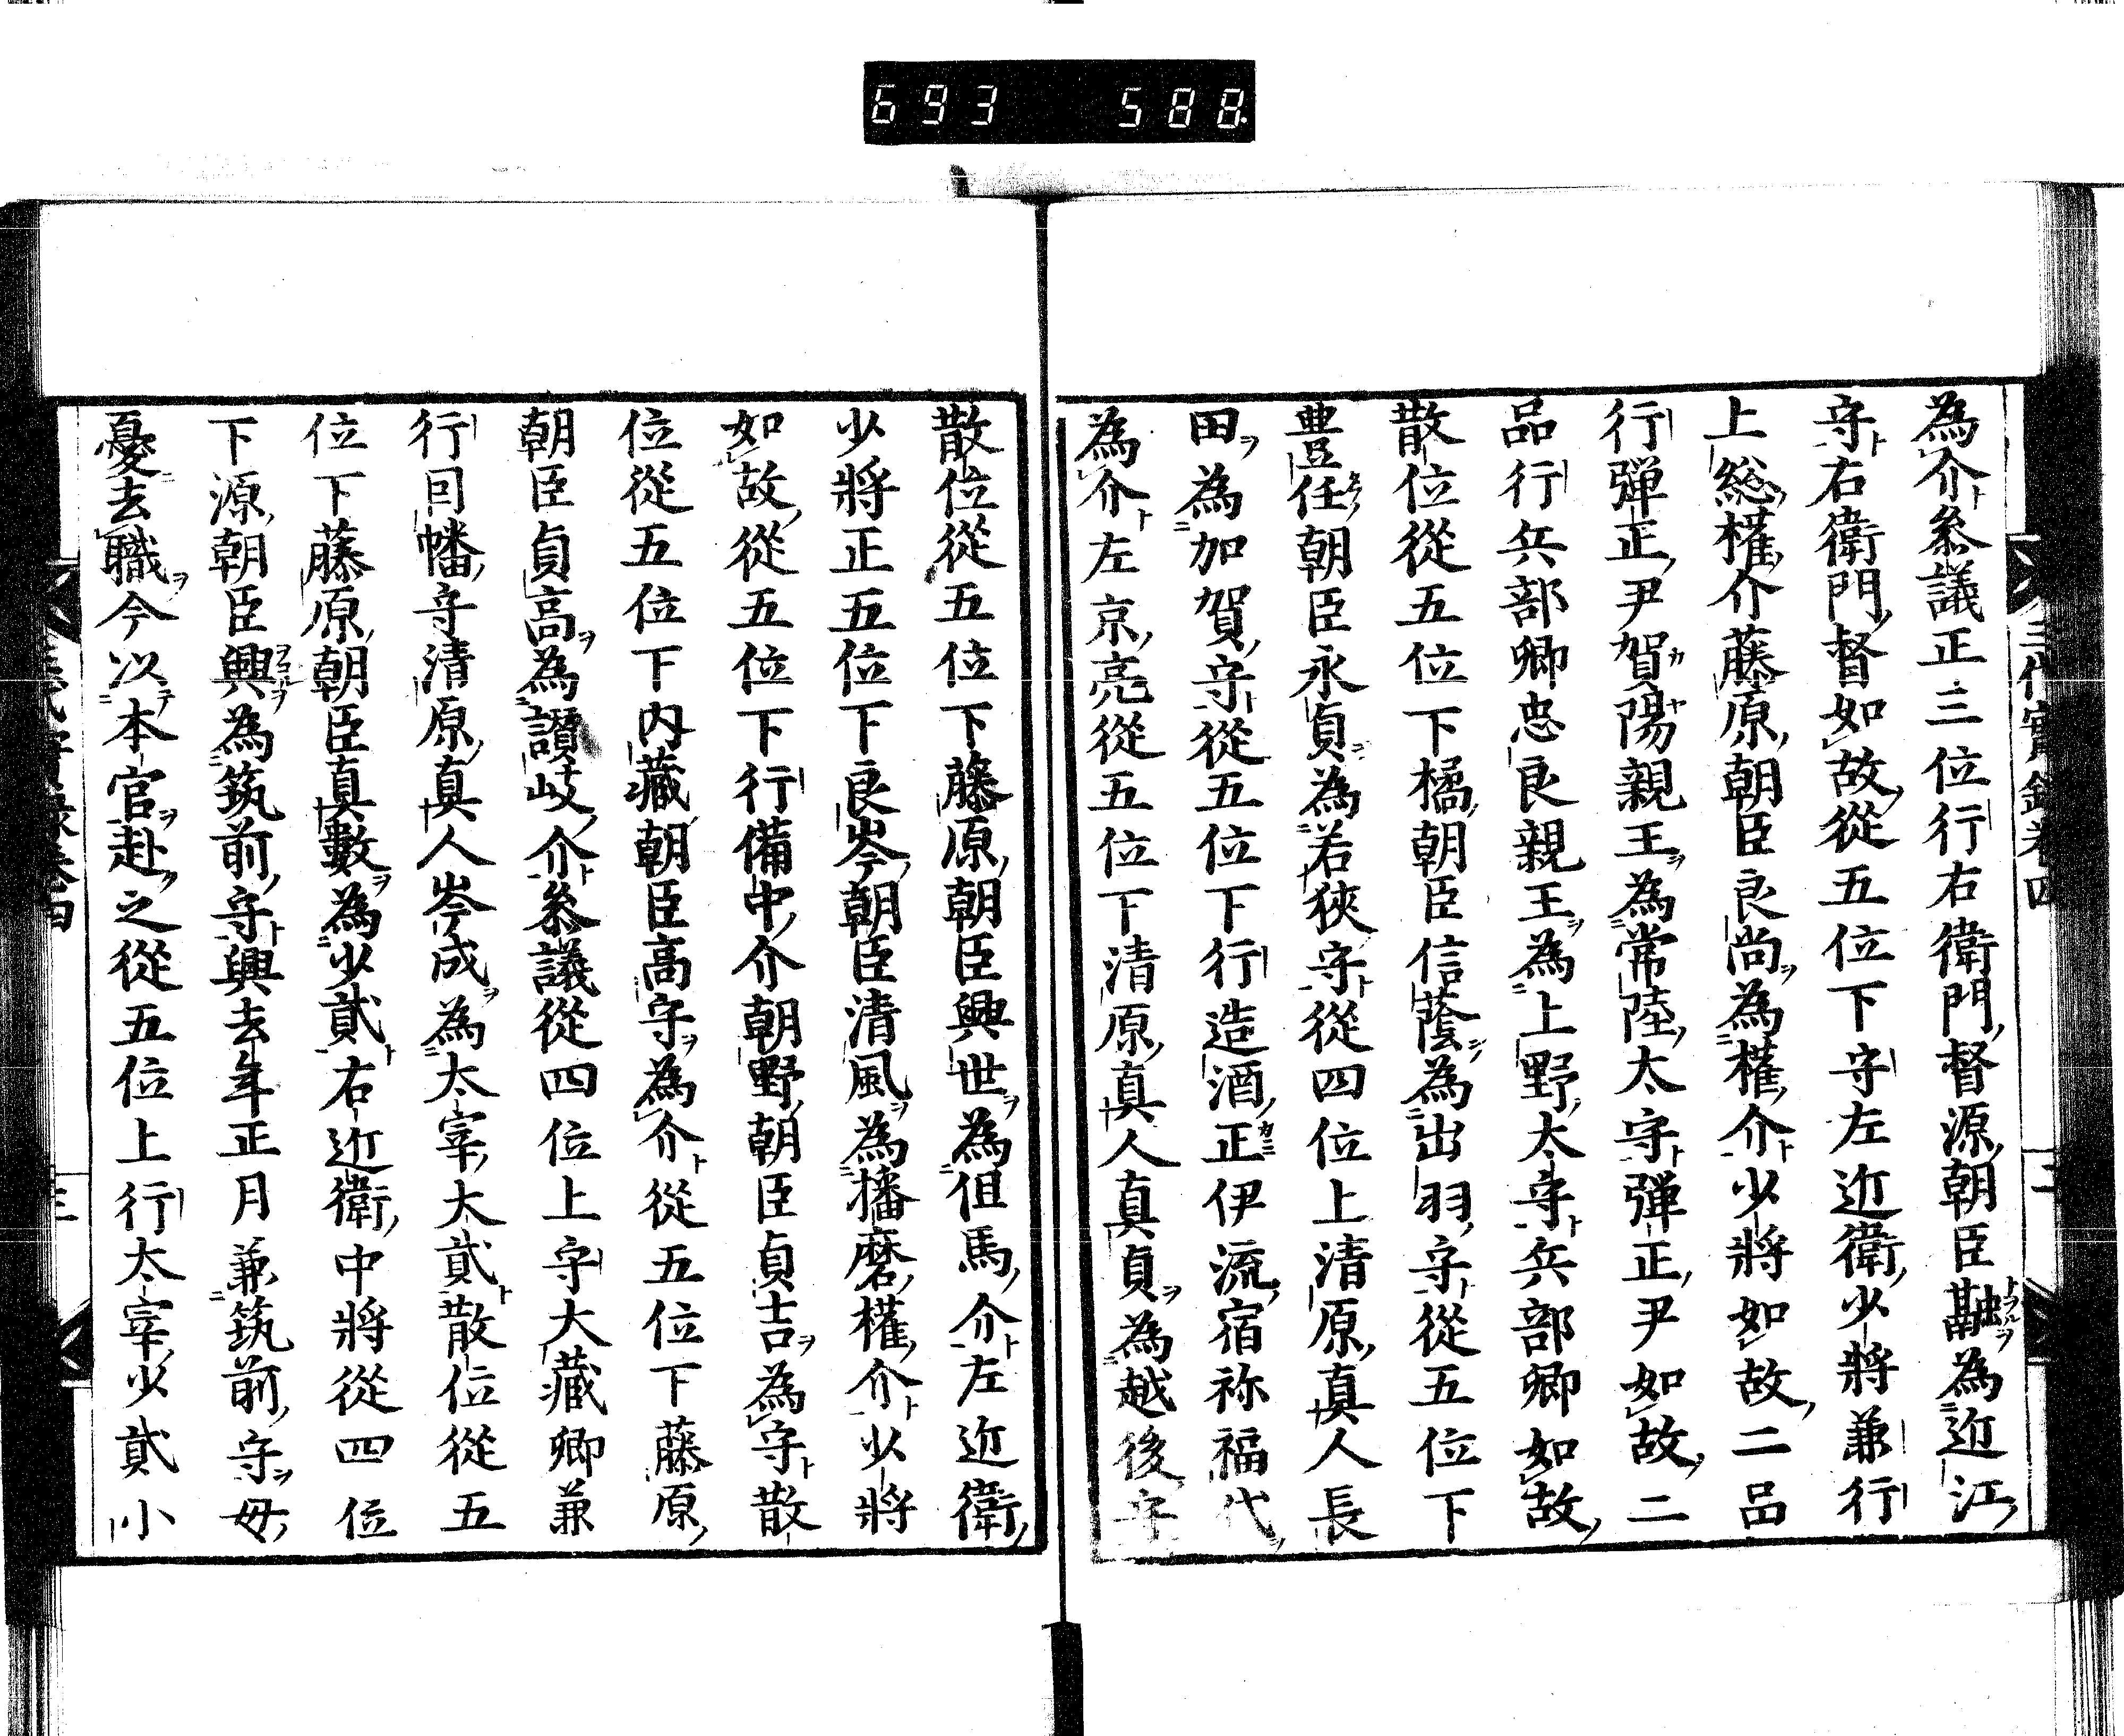 693 588
為介叅議正三位行右衛門督源朝臣融為近江
守右衛門督如故從五位下守左近衛少將兼行
上総權介藤原朝臣良尚為權介少將如故二品
行弾正尹賀陽親王為常陸太守弾正尹如故二
品行兵部卿忠良親王為上野太守兵部卿如故
散位從五位下橘朝臣信蔭為出羽守從五位下
豊住朝臣永貞為若狹守從四位上清原真人長
田為加賀守從五位下行造酒正伊流宿祢福代
為介左京亮從五位下清原真人真貞為越後守
散位從五位下藤原朝臣興世為但馬介左近衛
少將正五位下良岑朝臣清風為播磨權介少將
如故從五位下行備中介朝野朝臣貞吉為守散
位從五位下内藏朝臣高守為介從五位下藤原
朝臣貞高為讃岐介叅議從四位上守大藏卿兼
行因幡守清原真人岑成為太宰大貳散位從五
位下藤原朝臣真數為少貳右近衛中將從四位
下源朝臣興為筑前守興去年正月兼筑前守母
憂去職今以本官赴之從五位上行太宰少貳小